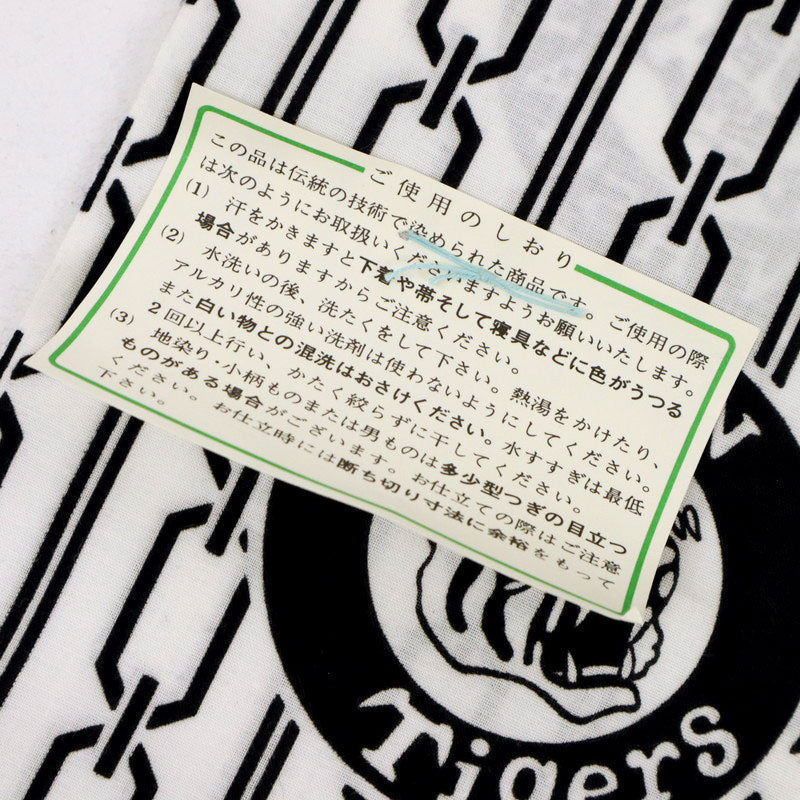 ご使用のしおり
この品は伝統の技術で染められた商品です。ご使用の際
は次のようにお取扱いくださいますようお願いいたします。
(1) 汗をかきますと下着や帯そして寝具などに色がうつる
場合がありますからご注意ください。
(2) 水洗いの後、洗たくをして下さい。熱湯をかけたり、
アルカリ性の強い洗剤は使わないようにしてください。
また白い物との混洗はおさけください。水すすぎは最低
2回以上行い、かたく絞らずに干してください。
(3) 地染り・小柄ものまたは男ものは多少型つぎの目立つ
ものがある場合がございます。お仕立ての際はご注意
ください。お仕立時には断ち切り寸法に余裕をもって
下さい。
Tigers